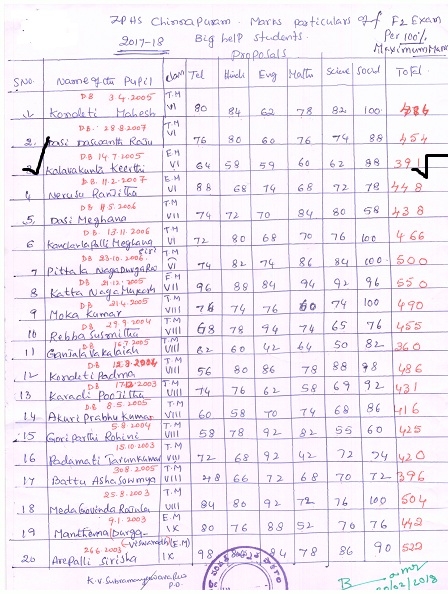 ZPHS Chinnapuram. Marks particulars of F2 Exam
2017-18 Big help students. Per 100%
Proposals Maximum Marks
S.No. Name of the Pupil class Tel Hindi Eng Maths Science Social Total
DB 3.4.2005 T.M
1 Kondeti Mahesh VI 80 84 62 78 82 100
DB. 28.8.2007 T.M
2. Dasi Daswanth Raju VI 76 80 60 76 74 88 454
DB 14.7.2005 E.M
3 Kalavakunta Keerthi VI 64 58 59 60 62 88 391
DB. 11.2.2007 E.M
4 Nerusu Ranjitha VI 88 68 74 68 72 78 448
DB 11.5.2006 T.M
5. Dasi Meghana VII 74 72 70 84 80 58 438
DB. 13.11.2006 T.M
6 Kondarlapalli Meghana VI 72 80 68 70 76 100 466
DB 23.10.2006 T.M
7 Pittala Naga Durga VI 74 82 74 86 84 100 500
DB 21.12.2005 E.M
8 Katta Naga VII 96 88 84 94 92 96 550
DB 21.4.2005 T.M
9 Moka Kumar VIII 76 74 76 60 74 100 490
DB 29.9.2004 T.M
10 Rebba Susmitha VIII 68 78 94 74 65 76 455
DB 16.7.2005 T.M
11 Ganjala Vakalaiah VIII 62 60 42 64 50 82 360
DB 2004 T.M
12 Kondeti Padma VIII 56 80 86 78 88 98 486
DB 2003 T.M
13 Karadi Poojitha VIII 74 76 62 58 69 92 431
DB 8.5.2005 T.M
14 Akuri Prabhu Kumar VIII 60 58 70 74 68 86 416
5.8.2004 T.M
15 Goriparthi Rohini VIII 58 78 92 82 55 60 425
15.10.2003 T.M
16 Padamati Tarun Kumar VIII 72 68 92 42 72 74 420
30.8.2005 T.M
17 Battu Asha Sowmya VIII 48 66 72 68 70 72 396
25.8.2003 T.M
18 Meda Govinda Rajulu VIII 84 80 92 72 76 100 504
9.1.2003 E.M
19 Durga IX 80 76 88 52 70 76 442
26.6.2003 (E.M)
20 Arepalli Sirisha IX 98 84 78 86 90 522
K.V Subramanyeswara Rao
P.D